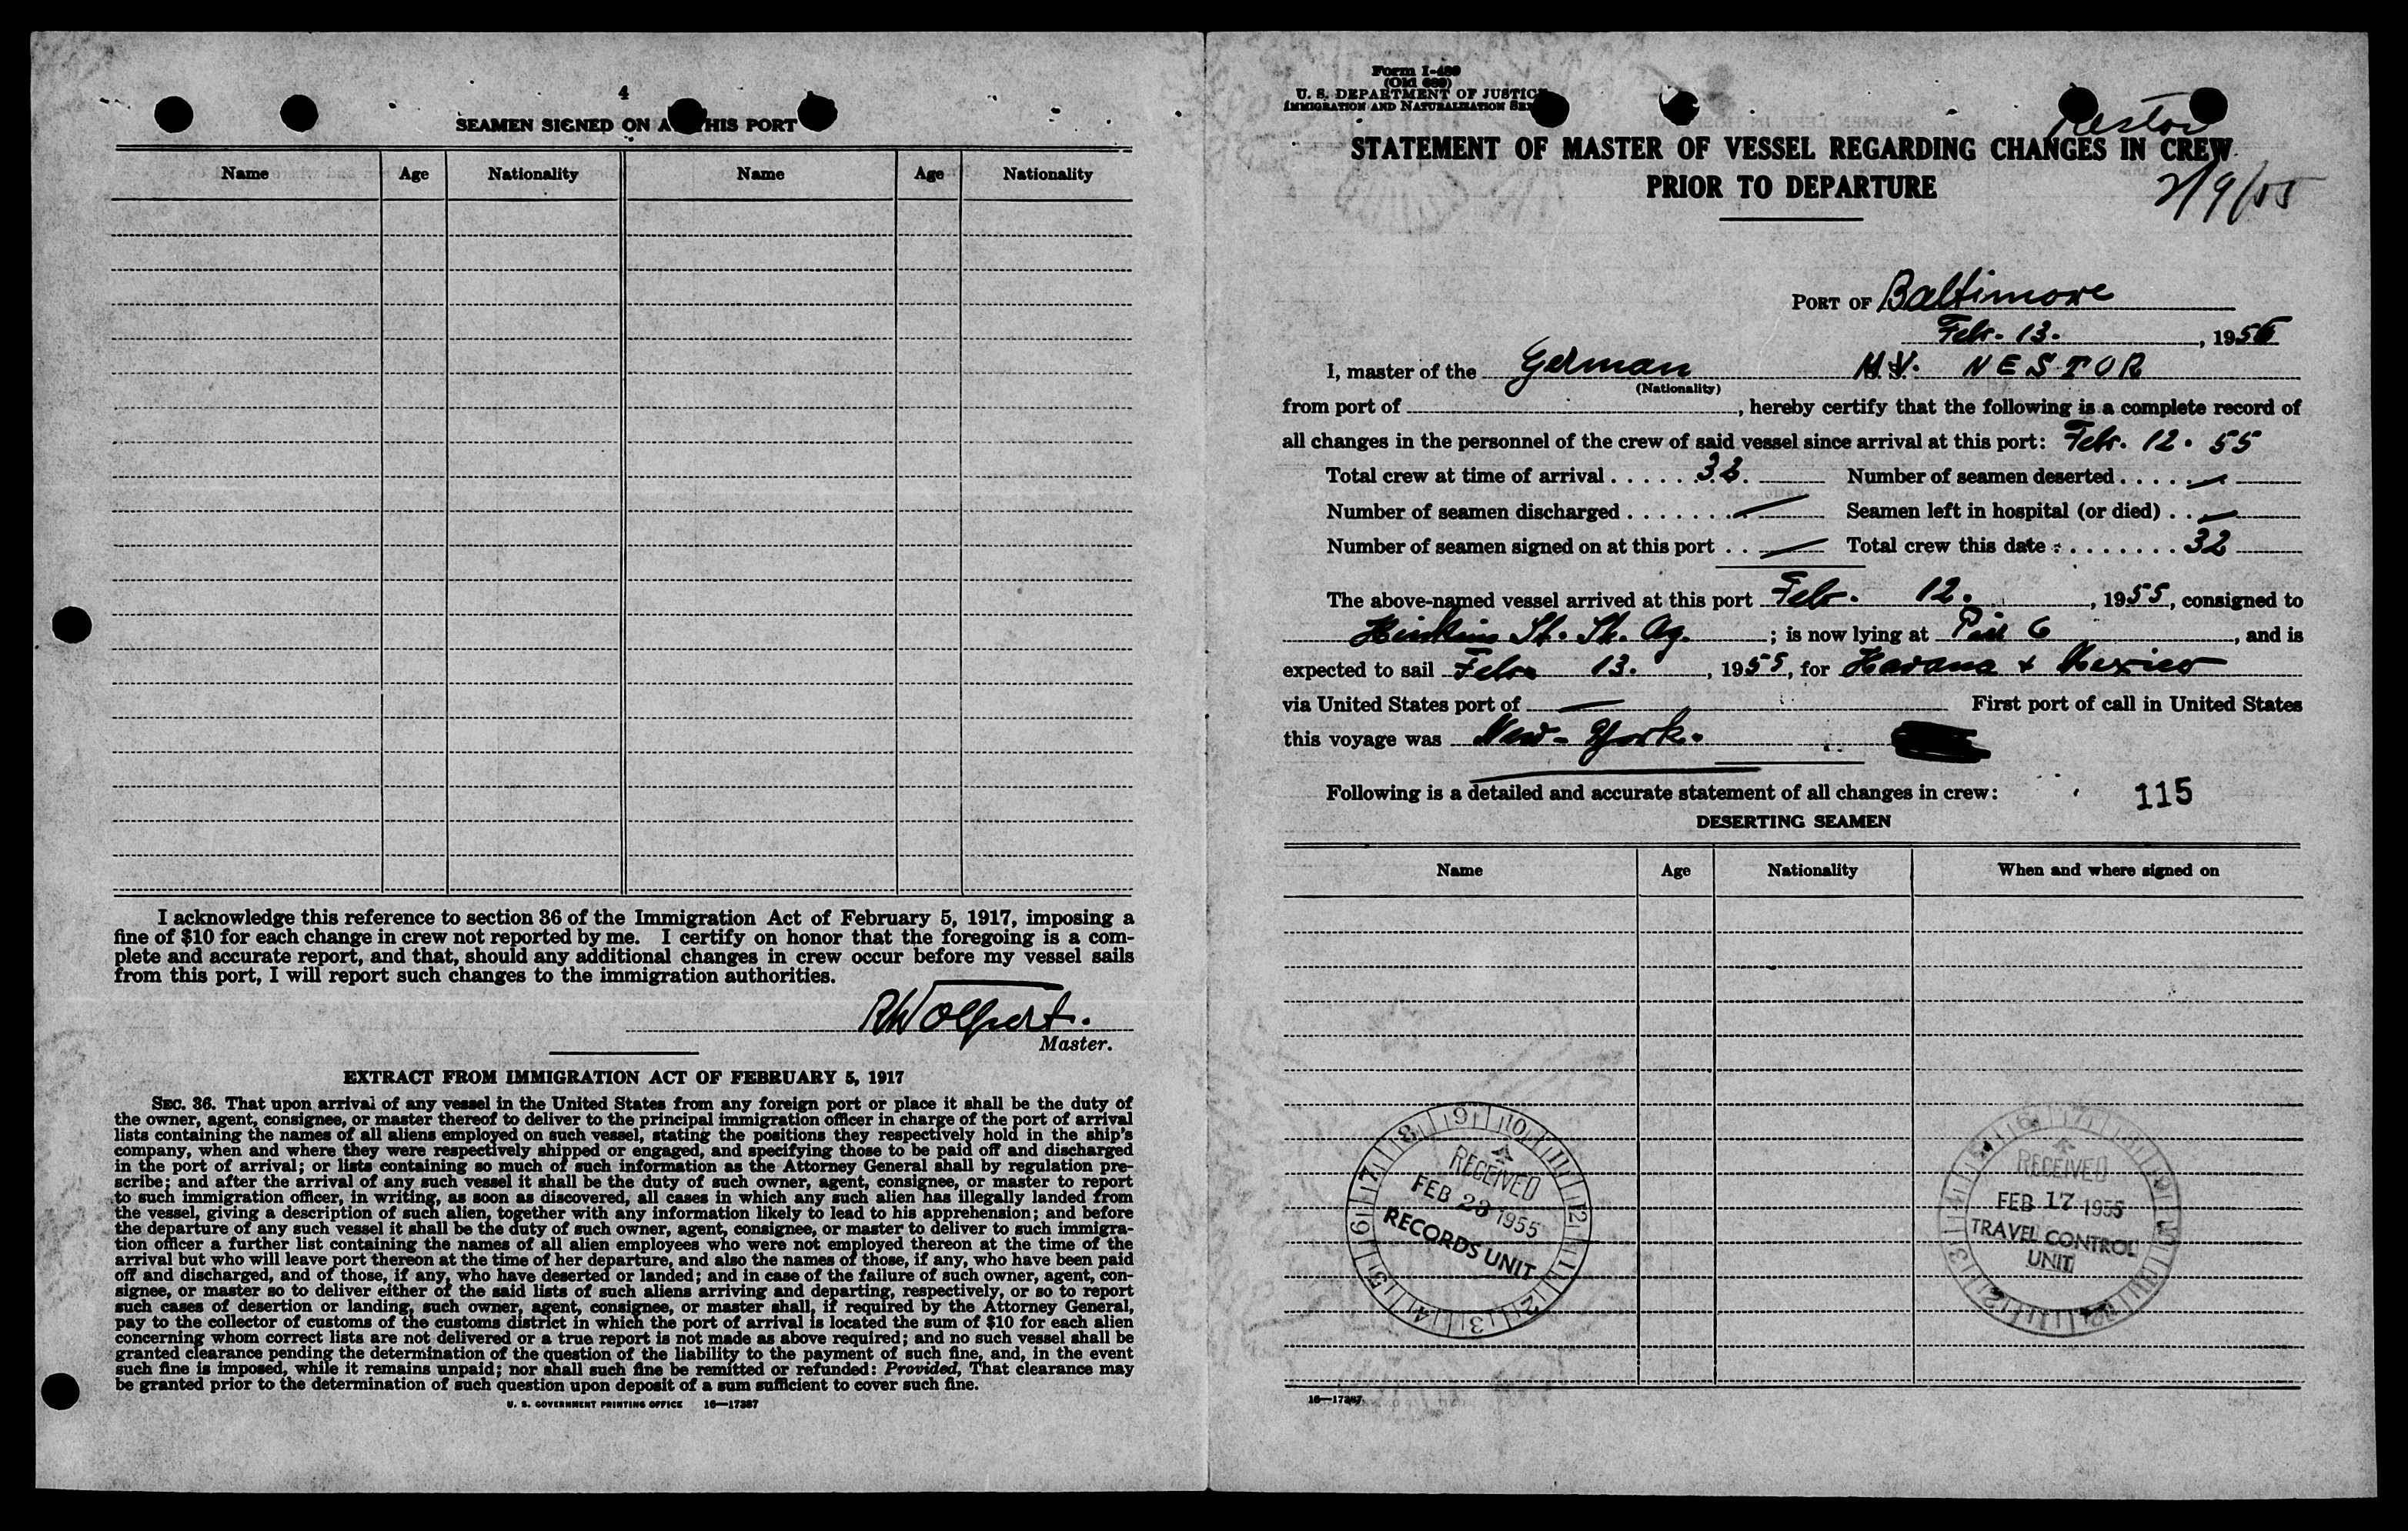 4
SEAMEN SIGNED ON A HIS PORT
Name Age Nationality Name Age Nationality
I acknowledge this reference to section 36 of the Immigration Act of February 5, 1917, imposing a
fine of $10 for each change in crew not reported by me. I certify on honor that the foregoing is a com-
plete and accurate report, and that, should any additional changes in crew occur before my vessel sails
from this port, I will report such changes to the immigration authorities.
RWolpert.
Master.
EXTRACT FROM IMMIGRATION ACT OF FEBRUARY 5, 1917
SEC. 36. That upon arrival of any vessel in the United States from any foreign port or place it shall be the duty of
the owner, agent, consignee, or master thereof to deliver to the principal immigration officer in charge of the port of arrival
lists containing the names of all aliens employed on such vessel, stating the positions they respectively hold in the ship's
company, when and where they were respectively shipped or engaged, and specifying those to be paid off and discharged
in the port of arrival; or lists containing so much of such information as the Attorney General shall by regulation pre-
scribe; and after the arrival of any such vessel it shall be the duty of such owner, agent, consignee, or master to report
to such immigration officer, in writing, as soon as discovered, all cases in which any such alien has illegally landed from
the vessel, giving a description of such alien, together with any information likely to lead to his apprehension; and before
the departure of any such vessel it shall be the duty of such owner, agent, consignee, or master to deliver to such immigra-
tion officer a further list containing the names of all alien employees who were not employed thereon at the time of the
arrival but who will leave port thereon at the time of her departure, and also the names of those, if any, who have been paid
off and discharged, and of those, if any, who have deserted or landed; and in case of the failure of such owner, agent, con-
signee, or master so to deliver either of the said lists of such aliens arriving and departing, respectively, or so to report
such cases of desertion or landing, such owner, agent, consignee, or master shall, if required by the Attorney General,
pay to the collector of customs of the customs district in which the port of arrival is located the sum of $10 for each alien
concerning whom correct lists are not delivered or a true report is not made as above required; and no such vessel shall be
granted clearance pending the determination of the question of the liability to the payment of such fine, and, in the event
such fine is imposed, while it remains unpaid; nor shall such fine be remitted or refunded: Provided, That clearance may
be granted prior to the determination of such question upon deposit of a sum sufficient to cover such fine.
U. S. GOVERNMENT PRINTING OFFICE 16—17387
Form I-489
(Old 689)
U. S. DEPARTMENT OF JUSTICE
IMMIGRATION AND NATURALIZATION SER
Nestor
STATEMENT OF MASTER OF VESSEL REGARDING CHANGES IN CREW
PRIOR TO DEPARTURE
2/9/55
PORT OF Baltimore
Febr. 13. , 1955
I, master of the German M.V. NESTOR
(Nationality)
from port of , hereby certify that the following is a complete record of
all changes in the personnel of the crew of said vessel since arrival at this port: Febr. 12. 55
Total crew at time of arrival . . . . . . 32. Number of seamen deserted . . . . . —
Number of seamen discharged . . . . . . . — Seamen left in hospital (or died) . . —
Number of seamen signed on at this port . . — Total crew this date . . . . . . . . 32
The above-named vessel arrived at this port Febr. 12. , 1955, consigned to
St. Ag. ; is now lying at Pier 6 , and is
expected to sail Febr. 13. , 1955, for Havana + Mexico
via United States port of — First port of call in United States
this voyage was New-York.
Following is a detailed and accurate statement of all changes in crew: 115
DESERTING SEAMEN
Name Age Nationality When and where signed on
RECEIVED
FEB 23 1955
RECORDS UNIT
RECEIVED
FEB 17 1955
TRAVEL CONTROL
UNIT
16—17387